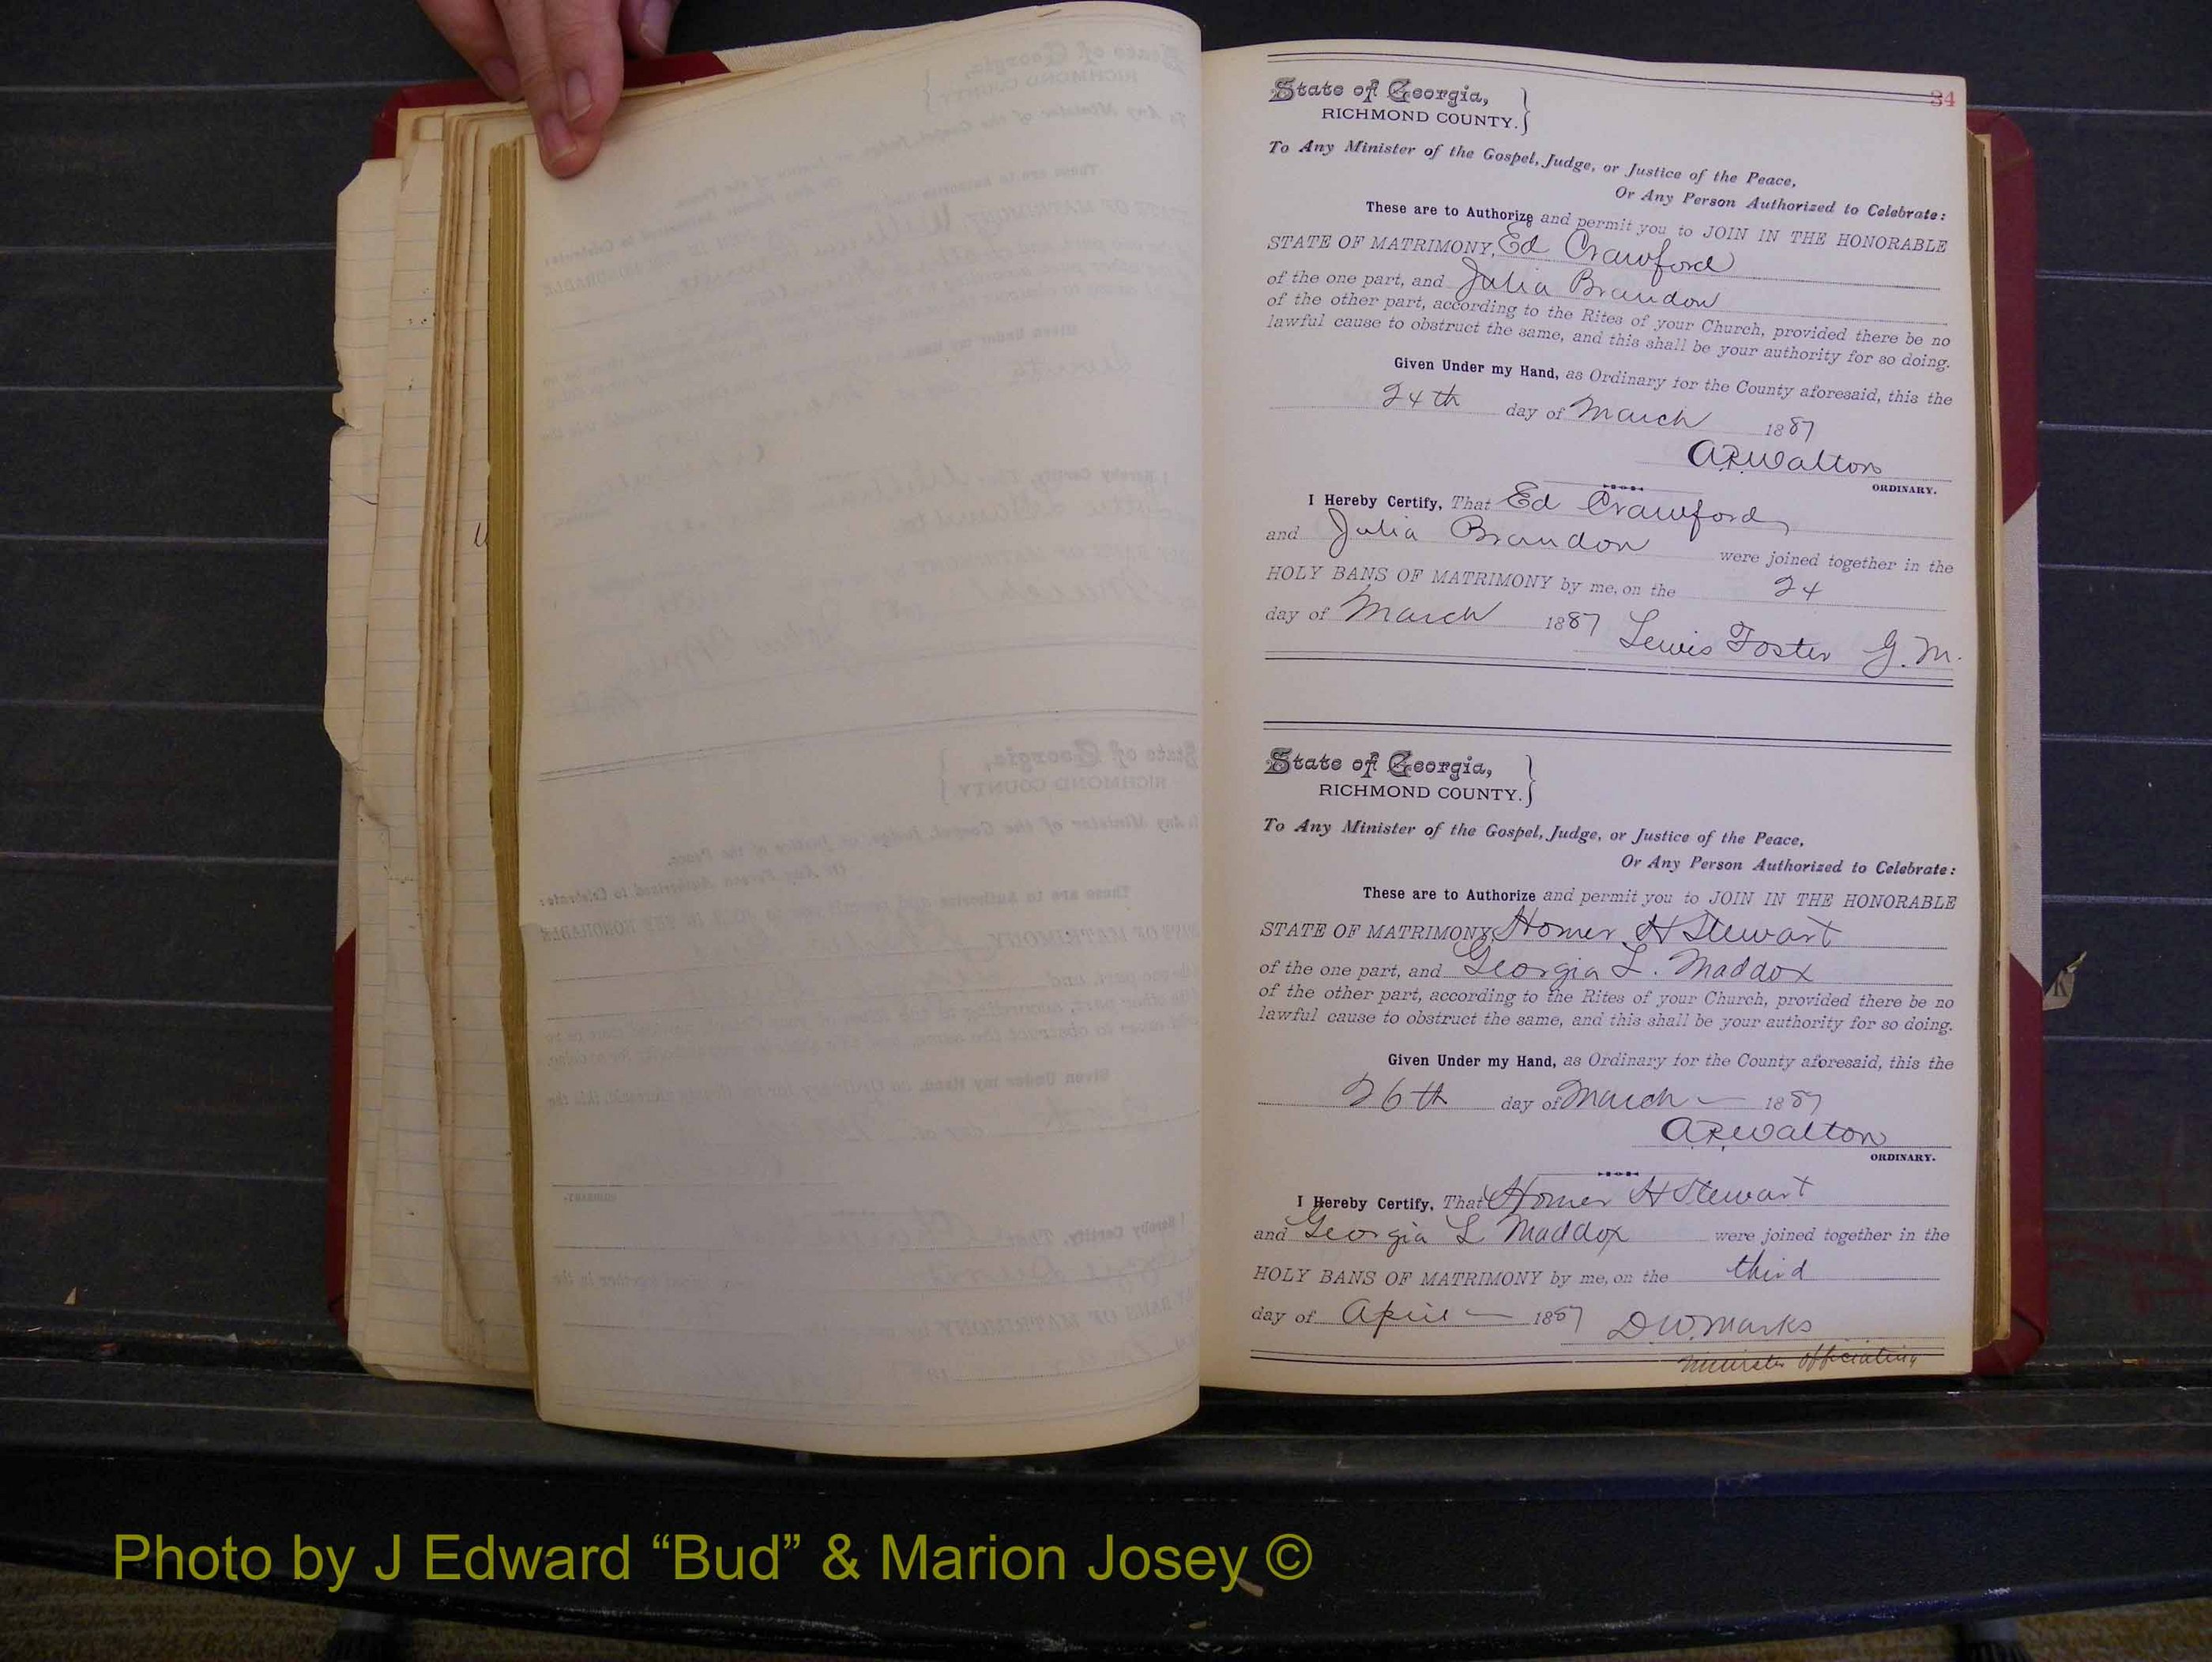 34
State of Georgia,
RICHMOND COUNTY.
To Any Minister of the Gospel, Judge, or Justice of the Peace,
Or Any Person Authorized to Celebrate:
These are to Authorize and permit you to JOIN IN THE HONORABLE
STATE OF MATRIMONY, Ed Crawford
of the one part, and Julia Brandon
of the other part, according to the Rites of your Church, provided there be no
lawful cause to obstruct the same, and this shall be your authority for so doing.
Given Under my Hand, as Ordinary for the County aforesaid, this the
24th day of March 1887
A.R. Walton
ORDINARY.
I Hereby Certify, That Ed Crawford
and Julia Brandon were joined together in the
HOLY BANS OF MATRIMONY by me, on the 24
day of March 1887 Lewis Foster G. M.
State of Georgia,
RICHMOND COUNTY.
To Any Minister of the Gospel, Judge, or Justice of the Peace,
Or Any Person Authorized to Celebrate:
These are to Authorize and permit you to JOIN IN THE HONORABLE
STATE OF MATRIMONY, Homer H Stewart
of the one part, and Georgia L. Maddox
of the other part, according to the Rites of your Church, provided there be no
lawful cause to obstruct the same, and this shall be your authority for so doing.
Given Under my Hand, as Ordinary for the County aforesaid, this the
26th day of March 1887
A.R. Walton
ORDINARY.
I Hereby Certify, That Homer H Stewart
and Georgia L Maddox were joined together in the
HOLY BANS OF MATRIMONY by me, on the third
day of April 1887 D.W. Marks
Minister officiating
K
Photo by J Edward “Bud” & Marion Josey ©